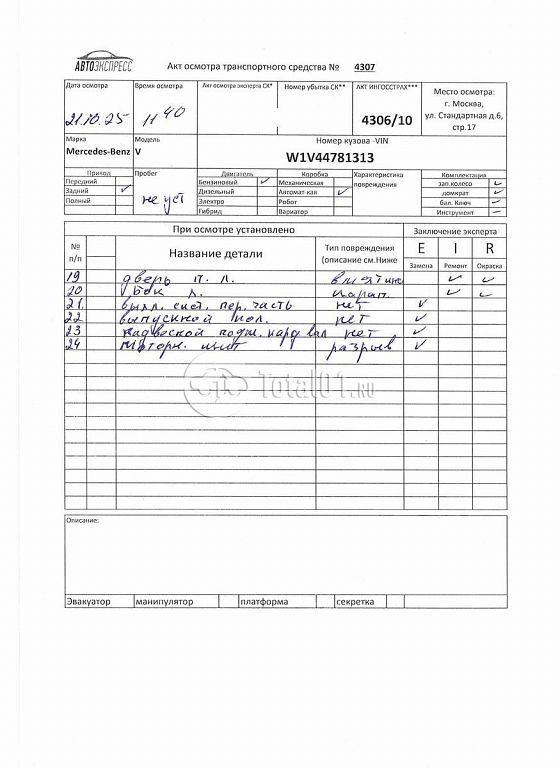 АВТОЭКСПРЕСС
Акт осмотра транспортного средства № 4307
Дата осмотра Время осмотра Акт осмотра эксперта СК* Номер убытка СК** АКТ ИНГОССТРАХ*** Место осмотра:
21.10.25 11 40 4306/10 г. Москва,
ул. Стандартная д.6,
стр.17
Марка Модель Номер кузова -VIN
Mercedes-Benz V W1V44781313
Привод Пробег Двигатель Коробка Характеристика повреждения Комплектация
Передний Бензиновый ✓ Механическая зап.колесо ✓
Задний ✓ не уст Дизельный Автомат-кая ✓ домкрат ✓
Полный Электро Робот бал. Ключ ✓
Гибрид Вариатор Инструмент ✓
При осмотре установлено Заключение эксперта
№ п/п Название детали Тип повреждения (описание см.Ниже E I R
Замена Ремонт Окраска
19 дверь п. л. вмятина ✓ ✓
20 бок л. царап. ✓ ✓
21. выхл. сист. пер. часть нет ✓
22 выпускной кол. нет ✓
23 подвесной подш. кард вал нет ✓
24 моторн. щит разрыв ✓
Total01.RU
Описание:
Эвакуатор манипулятор платформа секретка